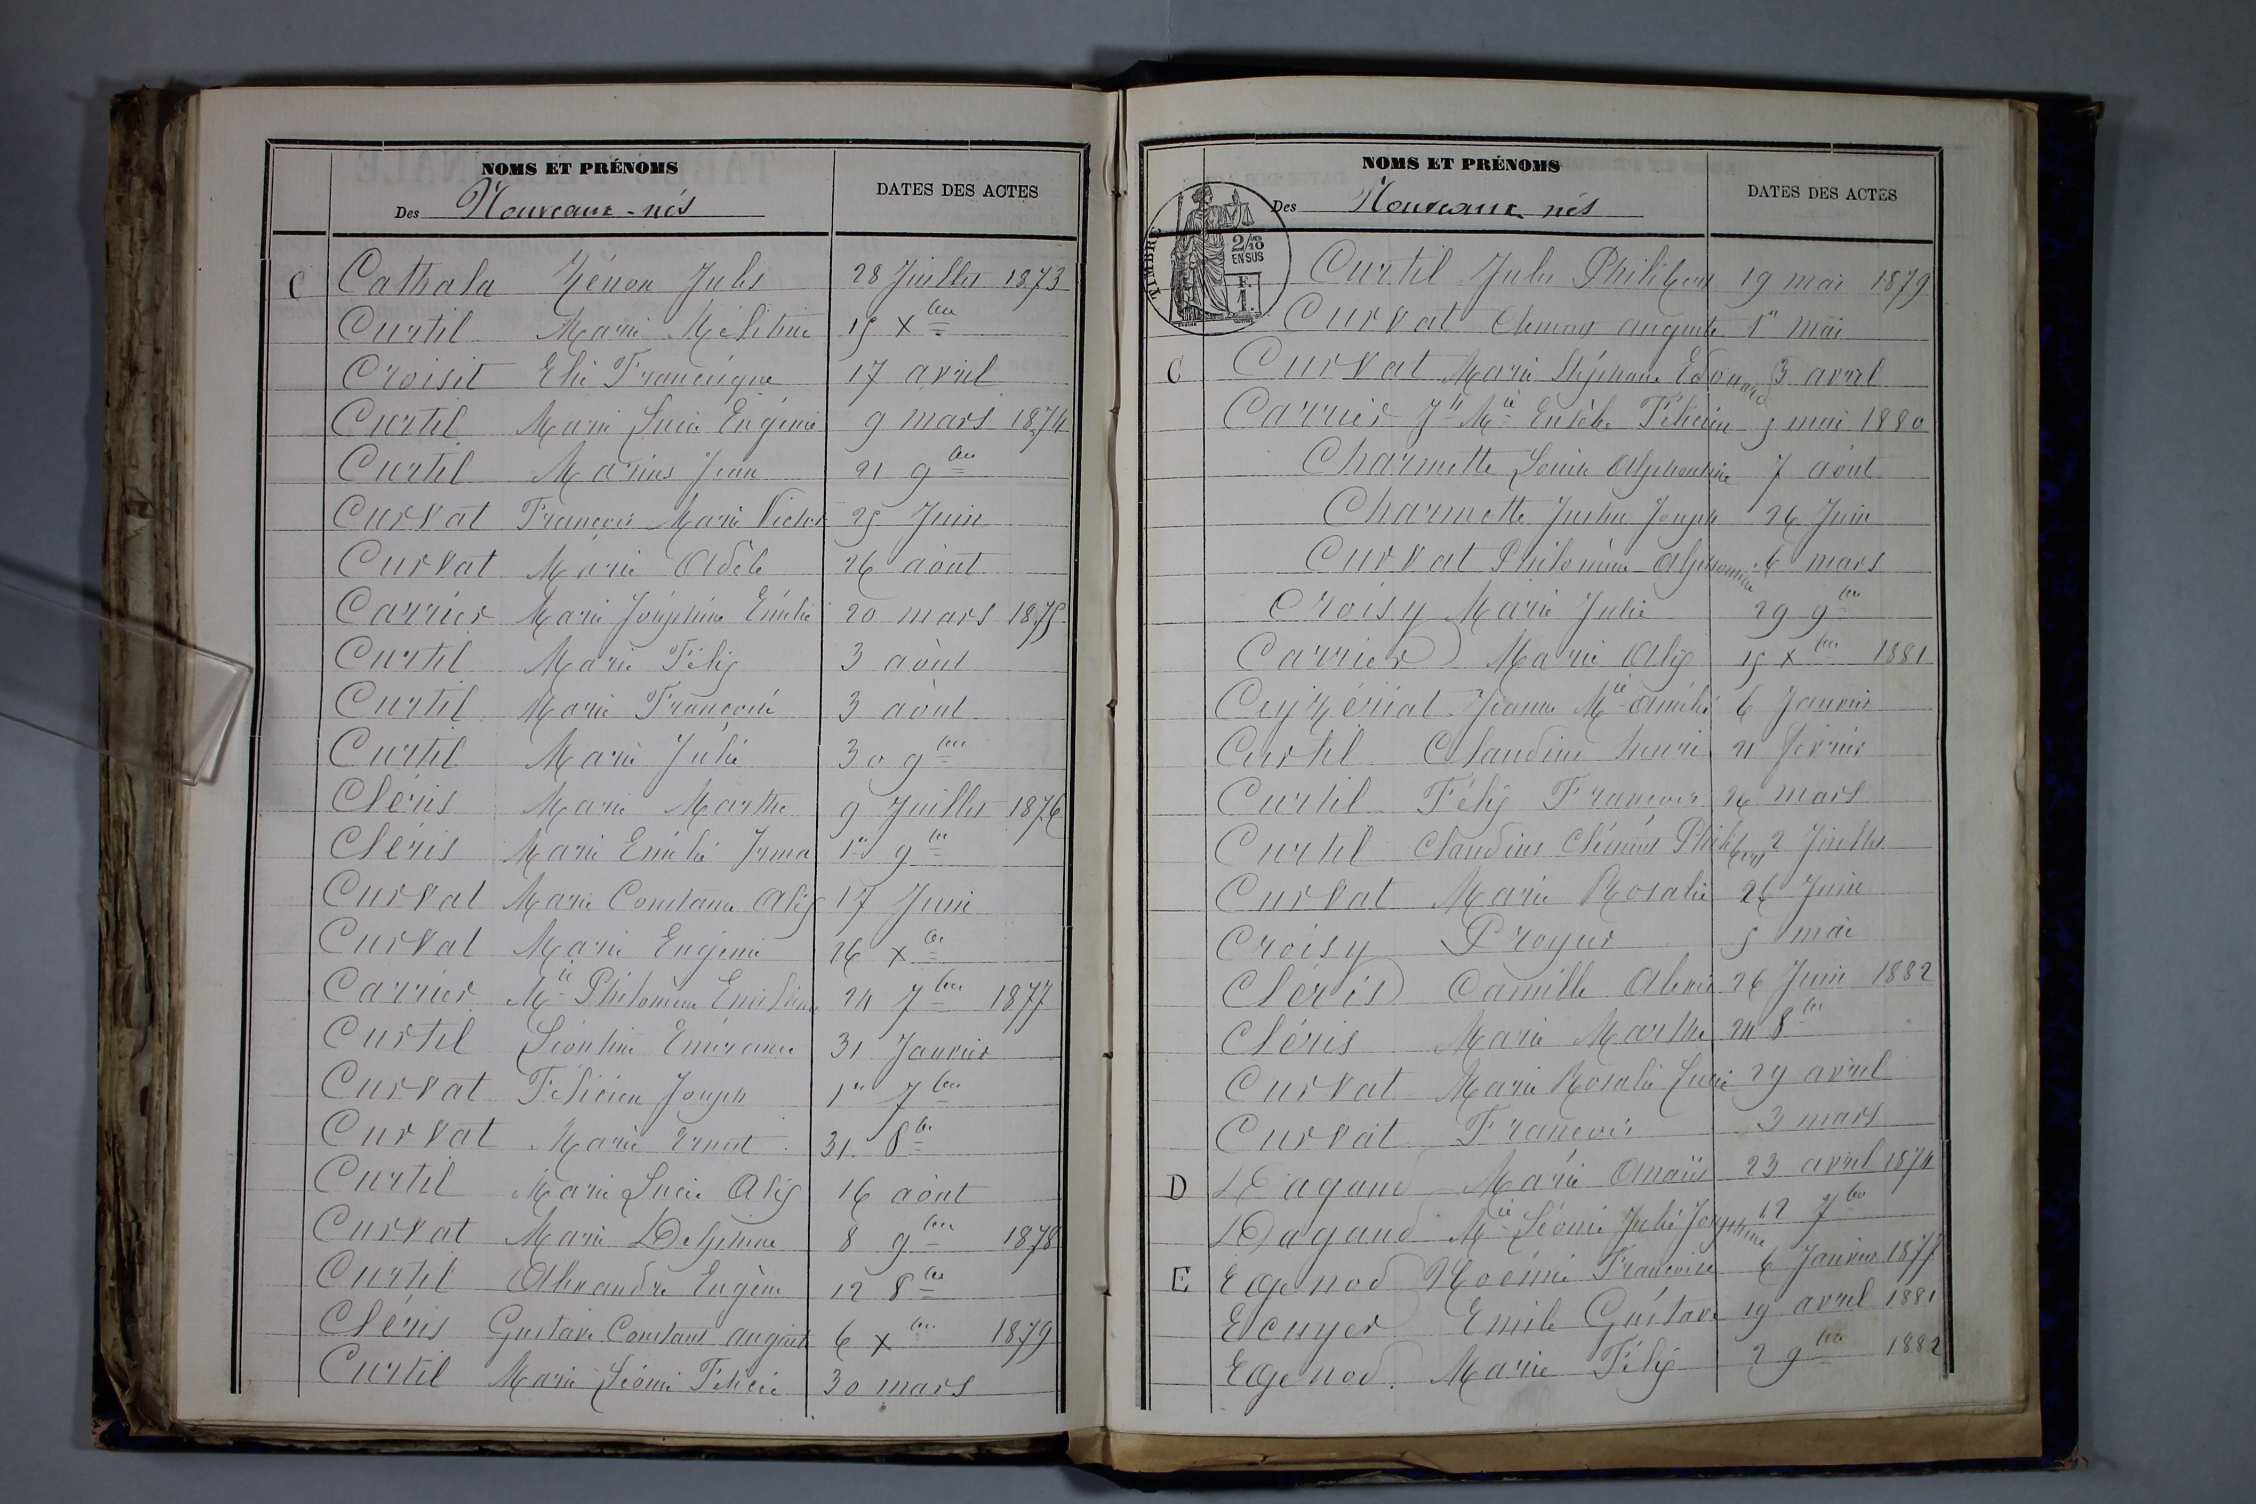 NOMS ET PRÉNOMS
Des Nouveaux-nés
DATES DES ACTES
C Cathala Zénon Jules 28 Juillet 1873
Curtil Marie Mélitine 15 Xbre
Croisit Elie Francisque 17 avril
Curtil Marie Lucie Eugénie 9 mars 1874
Curtil Marius Jean 21 9bre
Curvat François Marie Victor 25 Juin
Curvat Marie Adèle 26 août
Carrier Marie Joséphine Emélie 20 mars 1875
Curtil Marie Félix 3 août
Curtil Marie Françoise 3 août
Curtil Marie Julie 30 9bre
Cléris Marie Marthe 9 Juillet 1876
Cléris Marie Emélie Irma 1er 9bre
Curvat Marie Constance Alix 17 Juin
Curvat Marie Eugénie 26 Xbre
Carrier Mie Philomène Emiliene 24 7bre 1877
Curtil Léontine Emérance 31 Janvier
Curvat Félicien Joseph 1er 7bre
Curvat Marie Ernest 31 8bre
Curtil Marie Lucie Alix 16 août
Curvat Marie Delphine 8 9bre 1878
Curtil Alexandre Eugène 12 8bre
Cléris Gustave Constant auguste 6 Xbre 1879
Curtil Marie Léonie Félicie 30 mars
NOMS ET PRÉNOMS
Des Nouveaux-nés
DATES DES ACTES
TIMBRE
2/10
EN SUS
F.
1.
Curtil Jules Philibert 19 mai 1879
Curvat Clément auguste 1er mai
C Curvat Marie Stéphane Edouard 3 avril
Carrier Jh Mie Eusèbe Félicien 5 mai 1880
Charmette Louise Alphonsine 7 août
Charmette Justin Joseph 26 Juin
Curvat Philomène Alphonsine 6 mars
Croisy Marie Julie 29 9bre
Carrier Marie Alix 15 Xbre 1881
Jeanne Mie Amélie 6 Janvier
Curtil Claudine henri 21 février
Curtil Félix François 26 mars
Curtil Claudius Clément Philibert 2 Juillet
Curvat Marie Rosalie 26 Juin
Croisy Prosper 5 mai
Cléris Camille Alexis 26 Juin 1882
Cléris Marie Marthe 24 8bre
Curvat Marie Rosalie Lucie 29 avril
Curvat François 3 mars
D Dagand Marie Anaïs 23 avril 1874
Dagand Mie Léonie Julie Joséphine 12 7bre
E Egenod Noémie Françoise 6 Janvier 1877
Ecuyer Emile Gustave 19 avril 1881
Egenod Marie Félix 2 9bre 1882